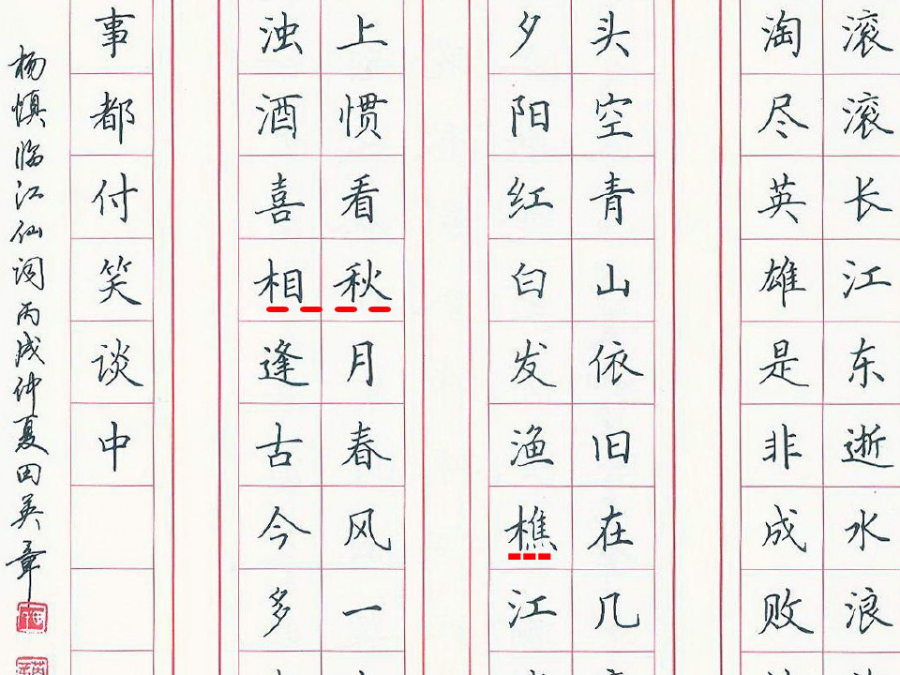 滚滚长江东逝水浪
淘尽英雄是非成败
头空青山依旧在几
夕阳红白发渔樵江
上惯看秋月春风一
浊酒喜相逢古今多
事都付笑谈中
杨慎临江仙词丙戌仲夏田英章